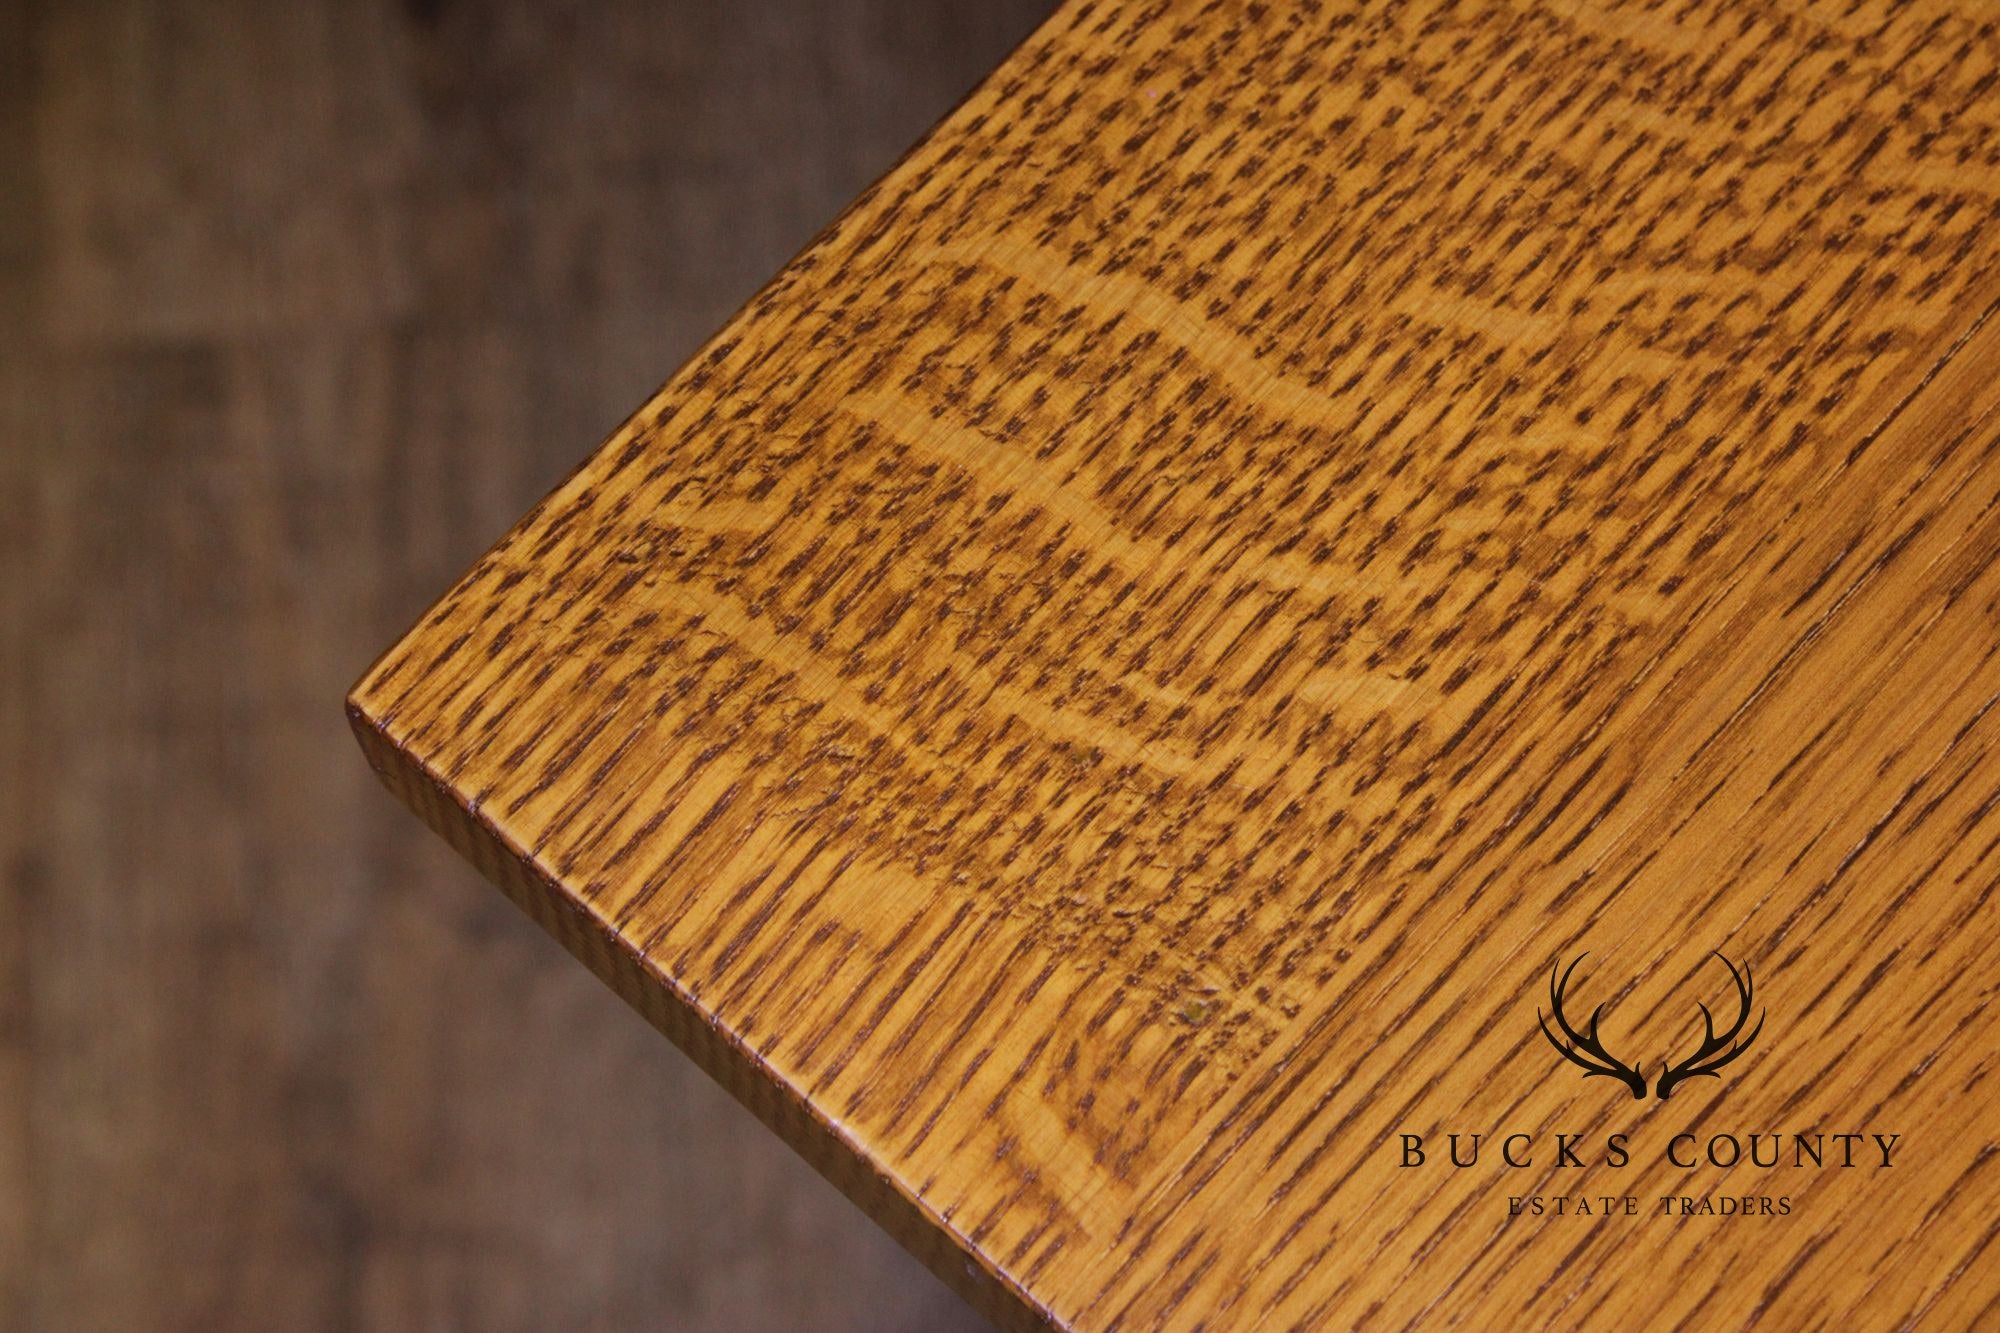 BUCKS COUNTY
ESTATE TRADERS